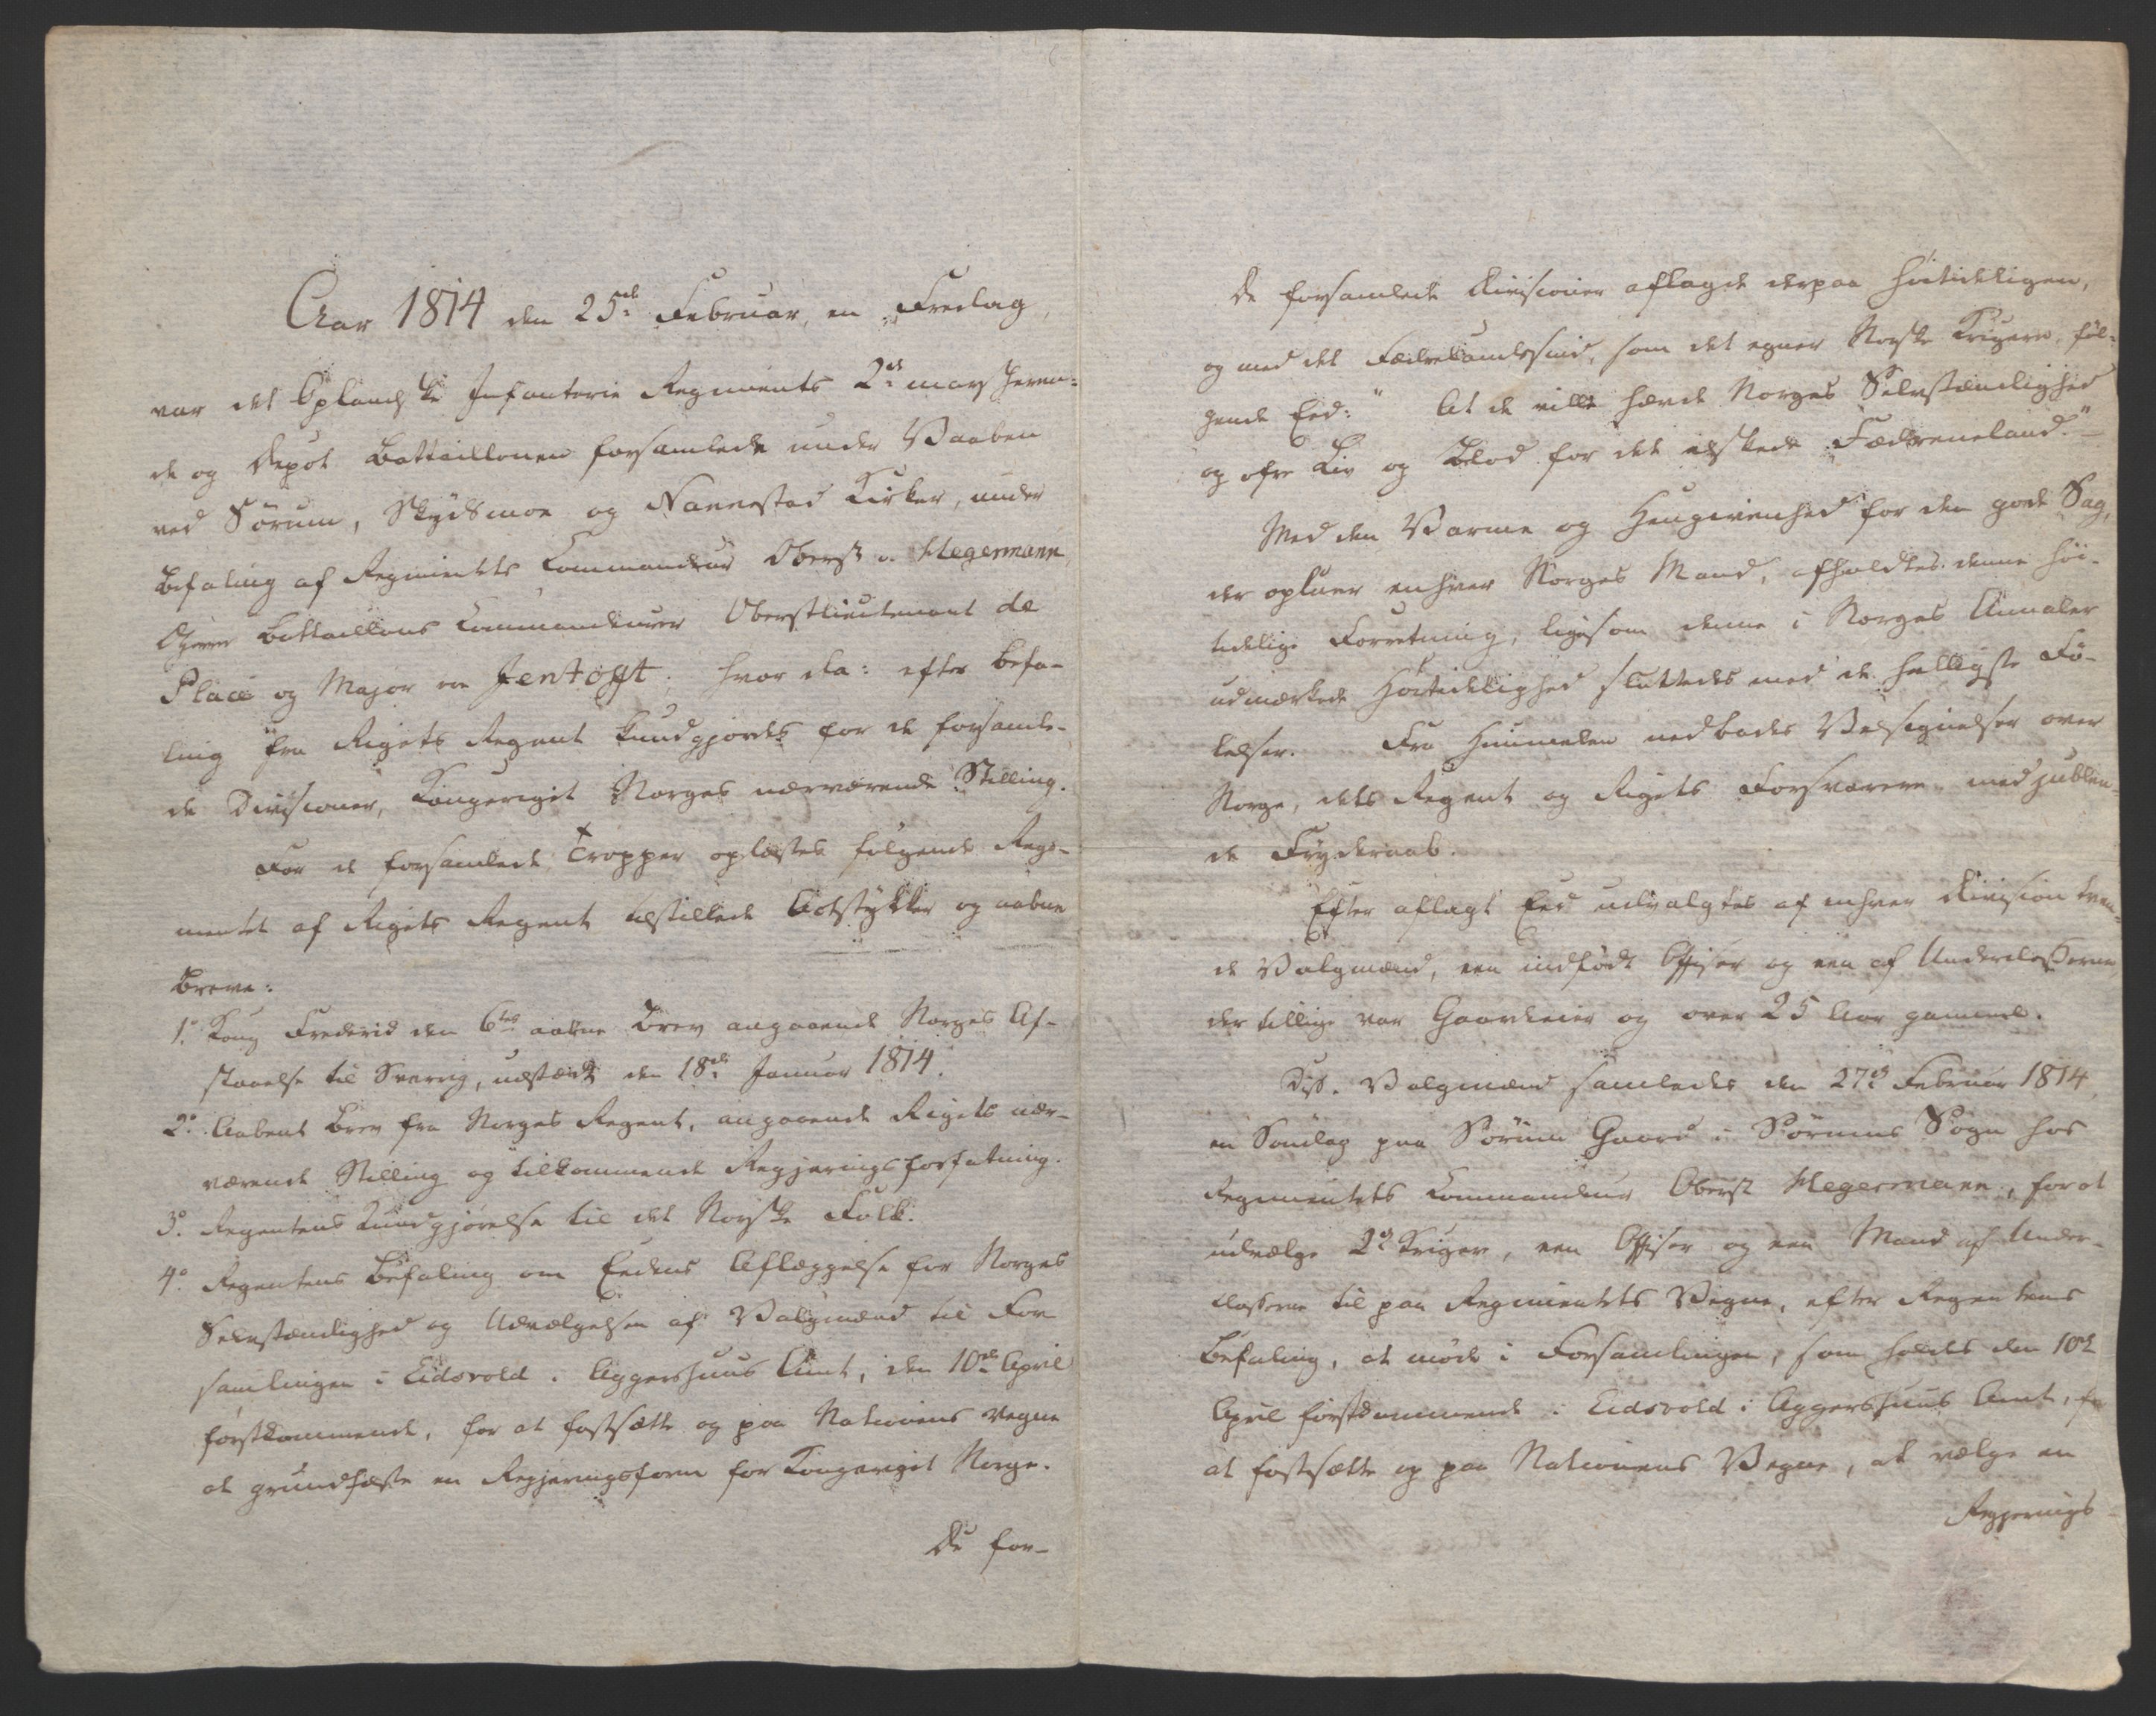 Aar 1814 den 25de Februar, en Fredag,
var det Oplandske Infanterie Regiments 2de marscheren-
de og Depot Battaillonen forsamlede under Vaaben
ved Sörum, Skydsmoe og Nannestad Kirker, under
Befaling af Regimentets Commandeur Oberst v. Hegermann,
Battaillons Commandeurer Oberstlieutenant de
Place og Major von Jentoft; hvor da: efter Befa-
ling fra Rigets Regent kundgjordes for de forsamle-
de Divisioner, Kongeriget Norges nærværende Stilling.
For de forsamlede Tropper oplæstes følgende Regi-
mentet af Rigets Regent tilstillede Actstykker og aabne
Breve:
1o. Kong Frederich den 6tes aabne Brev angaaende Norges Af-
staaelse til Sverrig, udstædt den 18de Januar 1814.
2o. Aabent Brev fra Norges Regent, angaaende Rigets nær-
værende Stilling og tilkommende Regjeringsforfatning.
3o. Regentens Kundgjørelse til det Norske Folk.
4o. Regentens Befaling om Eedens Aflæggelse for Norges
Selvstændighed og Udvælgelsen af Valgmænd til For
samlingen i Eidsvold i Aggershuus Amt, den 10de April
førstkommende, for at fastsætte og paa Nationens Vegne
at grundfæste en Regjeringsform for Kongeriget Norge.
De for-
De forsamlede Divisioner aflagde derpaa høitideligen,
og med det Fædrelandssind, som det egner Norske Krigere, føl-
gende Eed: " At de ville hævde Norges Selvstændighed
og ofre Liv og Blod for det elskede Fædreneland." –
Med den Varme og Hengivenhed for den gode Sag,
der opluer enhver Norges Mand, afholdtes denne høi-
tidelige Forretning, ligesom denne i Norges Annaler
udmærkede Høitidelighed sluttedes med de helligste Fø-
lelser. Fra Himmelen nedbades Velsignelser over
Norge, dets Regent og Rigets Forsvarere, med jublen-
de Fryderaab.
Efter aflagt Eed udvalgtes af enhver Division tven-
de Valgmænd, een indfødt Officer og een af Underclasserne
der tillige var Gaardeier og over 25 Aar gammel.
Diss. Valgmænd samledes den 27de Februar 1814,
en Søndag paa Sörum Gaard i Sörums Sogn hos
Regimentets Commandeur Oberst Hegermann, for at
udvælge 2de Kriger, een Officer og een Mand af Under-
classerne til paa Regimentets Vegne, efter Regentens
Befaling, at møde i Forsamlingen, som holdes den 10de
April førstkommende i Eidsvold i Aggershuus Amt, for
at fastsætte og paa Nationens Vegne, at vælge en
Regjerings-